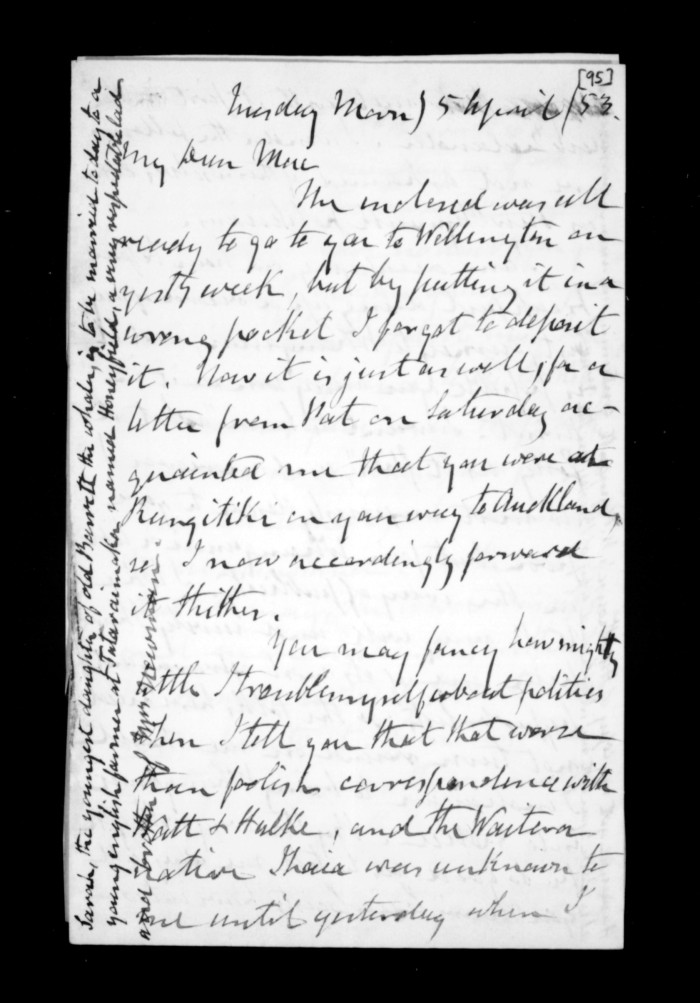 [95]
Tuesday Morng 5 April /53.
My Dear Mac
The inclosed was all
ready to go to you to Wellington on
yest'y week, but by putting it in a
wrong pocket I forgot to deposit
it. Now it is just as well, for a
letter from Pat on Saturday ac-
quainted me that you were at
Rangitiki on your way to Auckland,
so I now accordingly forward
it thither.
You may fancy how mighty
little I trouble myself about politics
when I tell you that that worse
than foolish correspondence with
Watt & Halke, and the Waitera
native Ihaia was unknown to
me until yesterday when I
Sarah, the youngest daughter of old Barrett the whaler, is to be married today to a
young english farmer at Tataraimaka named Honeyfield, a very respectable lad
and brother of Mrs Newman